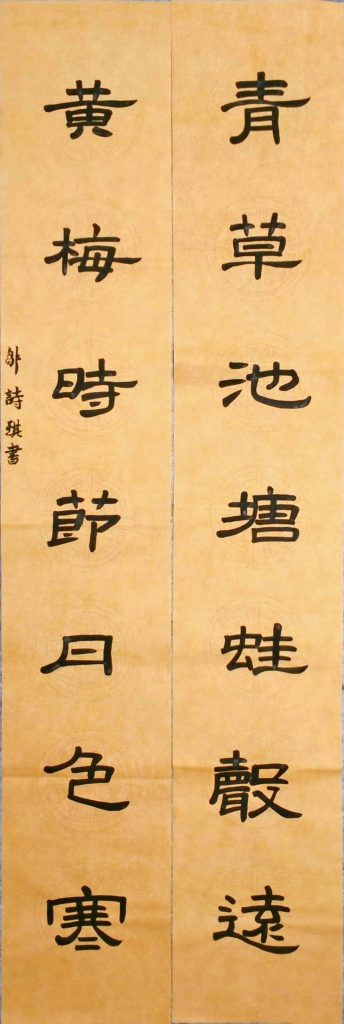 青草池塘蛙聲遠
黃梅時節日色寒
鄒詩琪書